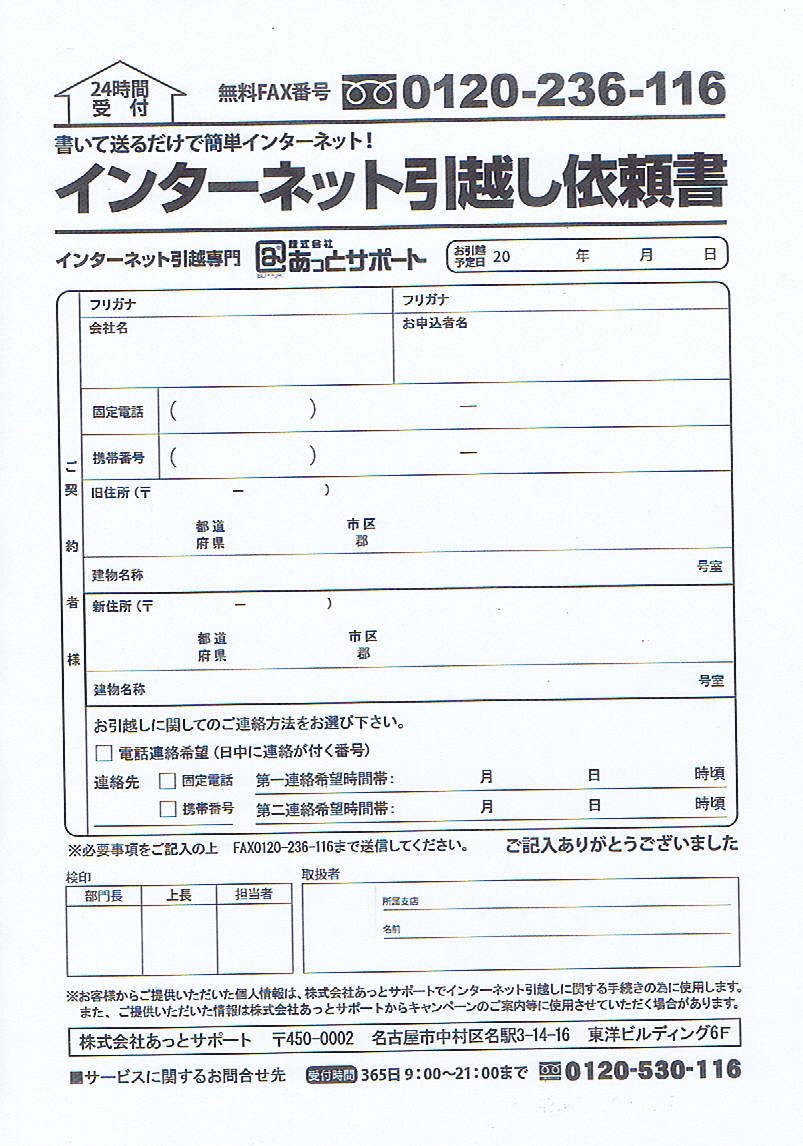 24時間
受 付
無料FAX番号 0120-236-116
書いて送るだけで簡単インターネット！
インターネット引越し依頼書
インターネット引越専門 株式会社 あっとサポート お引越予定日 20 年 月 日
フリガナ フリガナ
会社名 お申込者名
固定電話 ( ) ー
携帯番号 ( ) ー
ご契約者様
旧住所 (〒 ー )
都道 市区
府県 郡
建物名称 号室
新住所 (〒 ー )
都道 市区
府県 郡
建物名称 号室
お引越しに関してのご連絡方法をお選び下さい。
□ 電話連絡希望 (日中に連絡が付く番号)
連絡先 □ 固定電話 第一連絡希望時間帯： 月 日 時頃
□ 携帯番号 第二連絡希望時間帯： 月 日 時頃
※必要事項をご記入の上 FAX0120-236-116まで送信してください。 ご記入ありがとうございました
検印 取扱者
部門長 上長 担当者
所属支店
名前
※お客様からご提供いただいた個人情報は、株式会社あっとサポートでインターネット引越しに関する手続きの為に使用します。
また、ご提供いただいた情報は株式会社あっとサポートからキャンペーンのご案内等に使用させていただく場合があります。
株式会社あっとサポート 〒450-0002 名古屋市中村区名駅3-14-16 東洋ビルディング6F
■サービスに関するお問合せ先 受付時間 365日 9：00〜21：00まで 0120-530-116